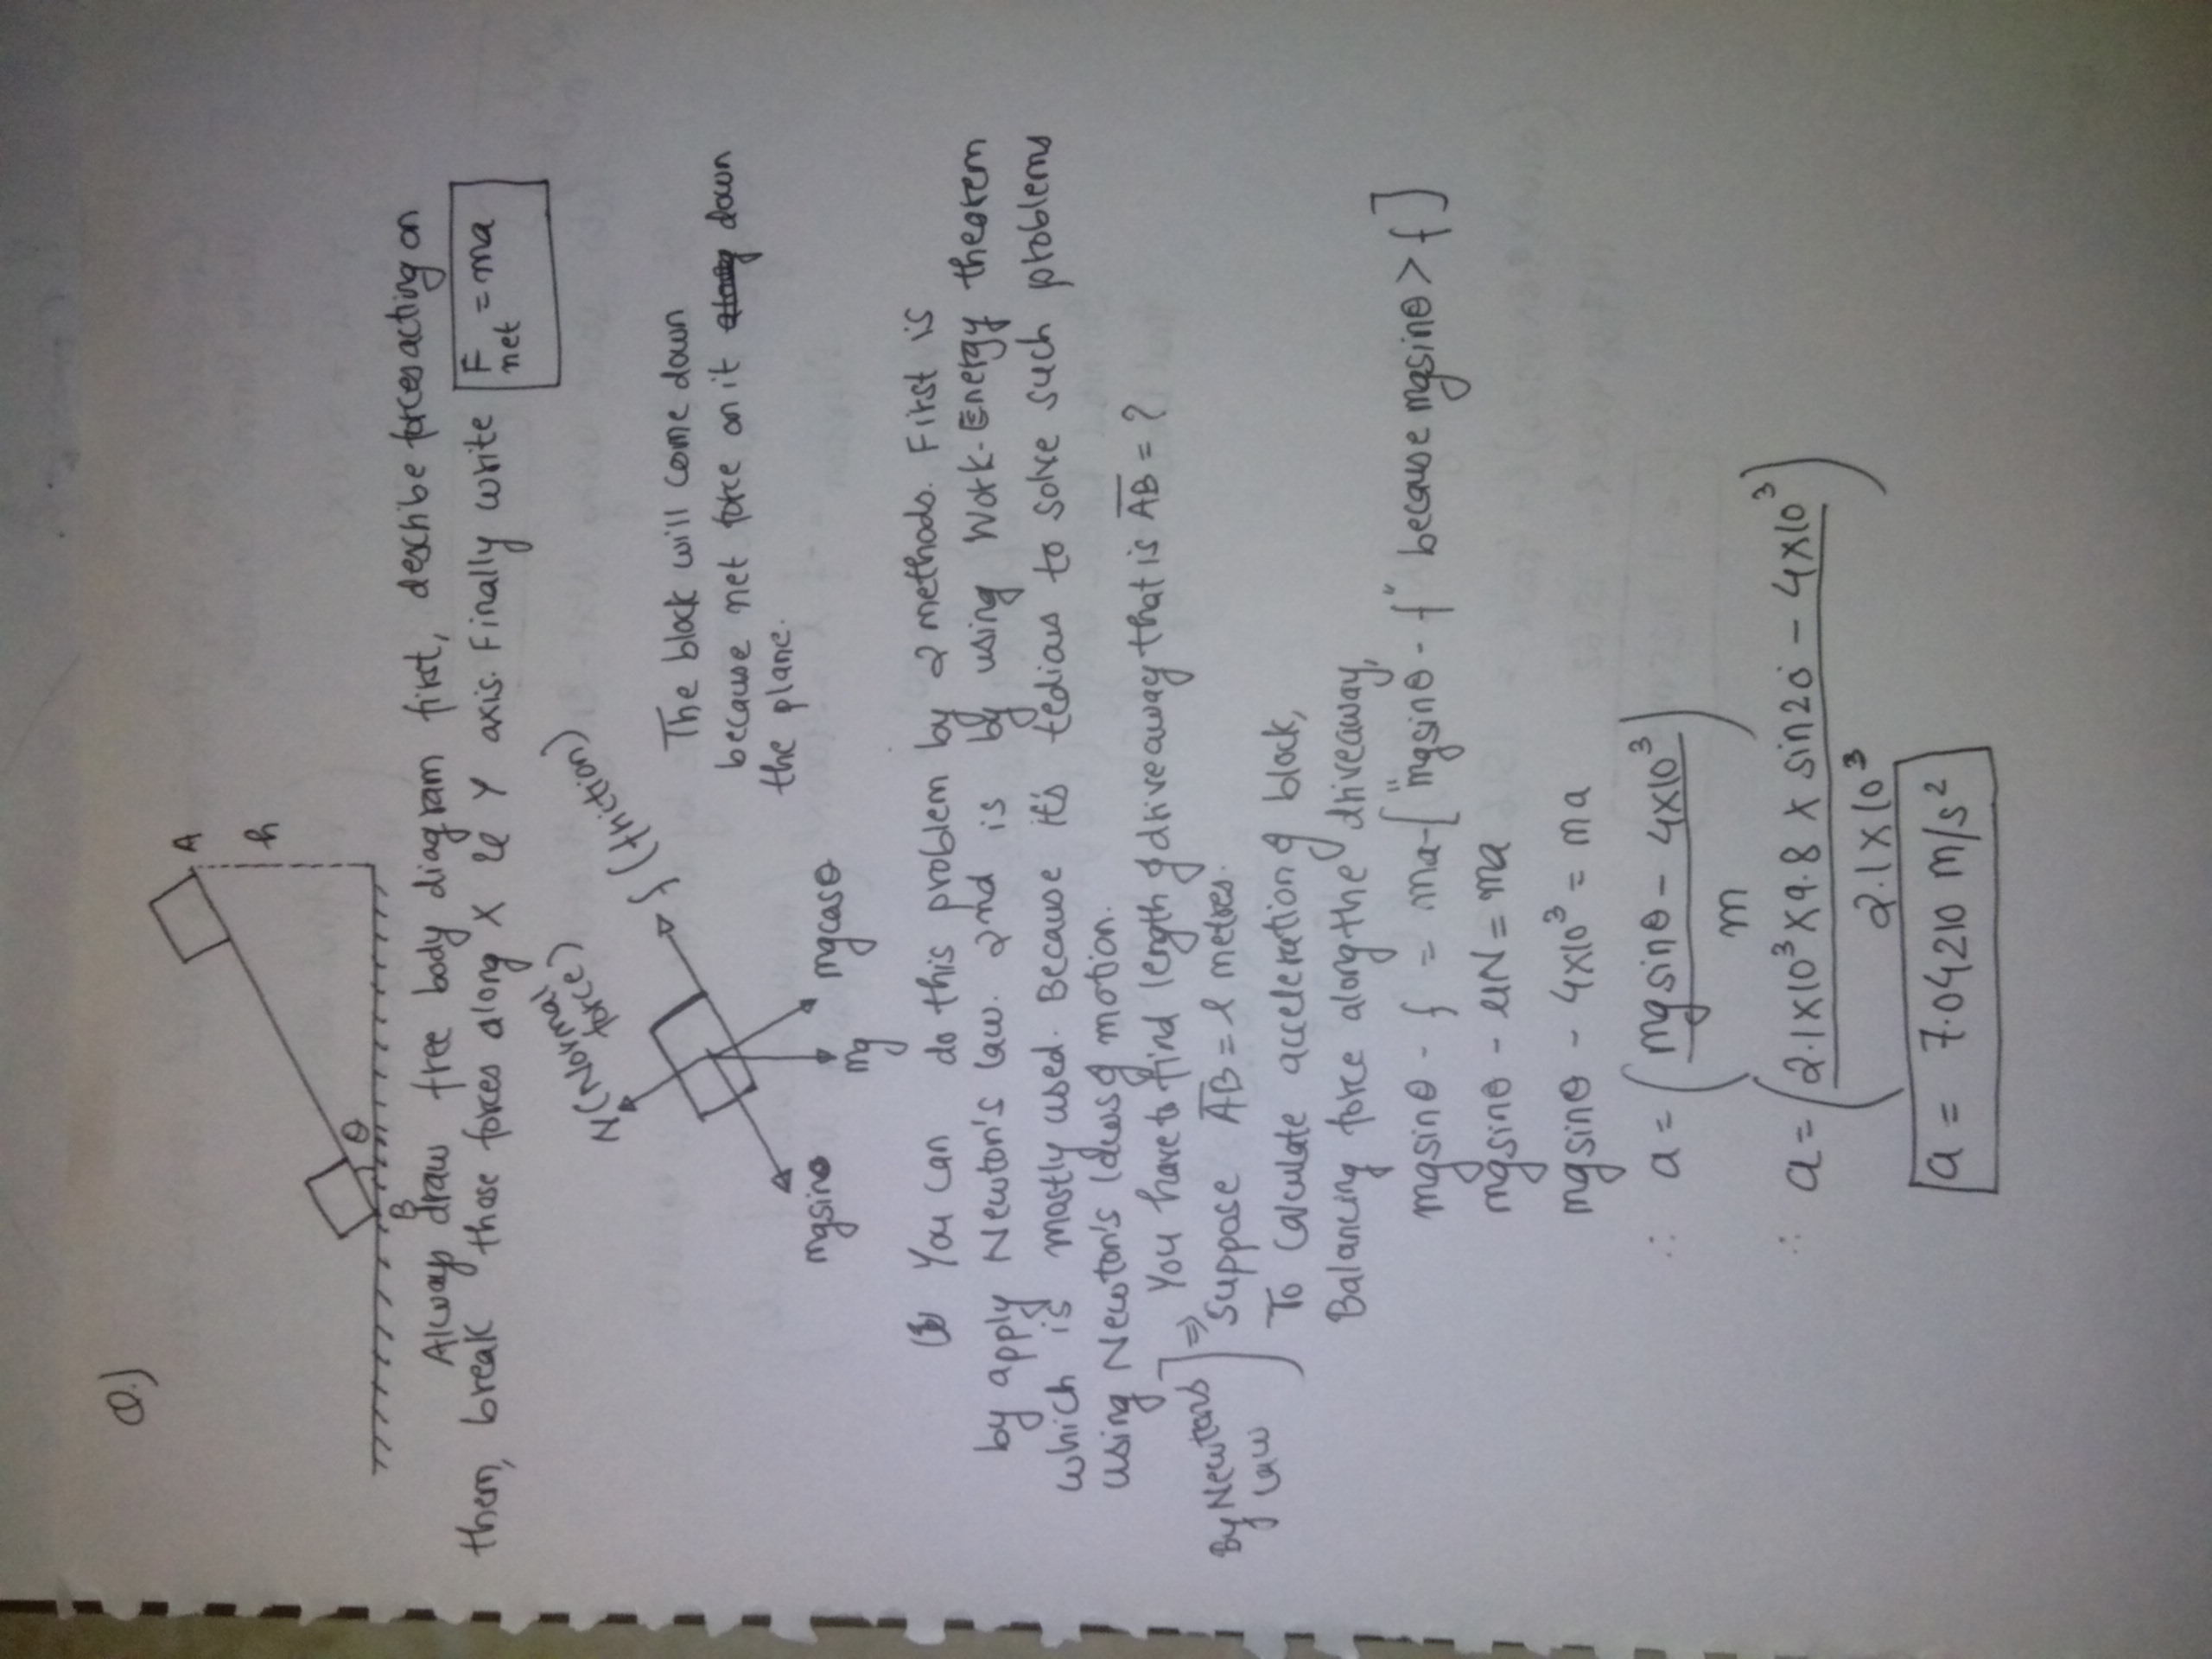 Q.)
A
h
B
θ
Always draw free body diagram first, describe forces acting on
them, break those forces along X & Y axis. Finally write F net = ma
N (Normal force)
f (friction)
mgsinθ
mg
mgcosθ
The block will come down
because net force on it down
the plane.
You can do this problem by 2 methods. First is
by apply Newton's law. 2nd is by using Work-Energy theorem
which is mostly used. Because it's tedious to solve such problems
using Newton's laws of motion.
By Newtons law ] ⇒ You have to find length of driveaway that is AB = ?
Suppose AB = l metres.
To calculate acceleration of block,
Balancing force along the driveaway,
mgsinθ - f = ma - ["mgsinθ - f" because mgsinθ > f]
mgsinθ - μN = ma
mgsinθ - 4×10³ = ma
∴ a = (mgsinθ - 4×10³ / m)
∴ a = (2.1×10³ × 9.8 × sin20° - 4×10³ / 2.1×10³)
a = 7.04210 m/s²